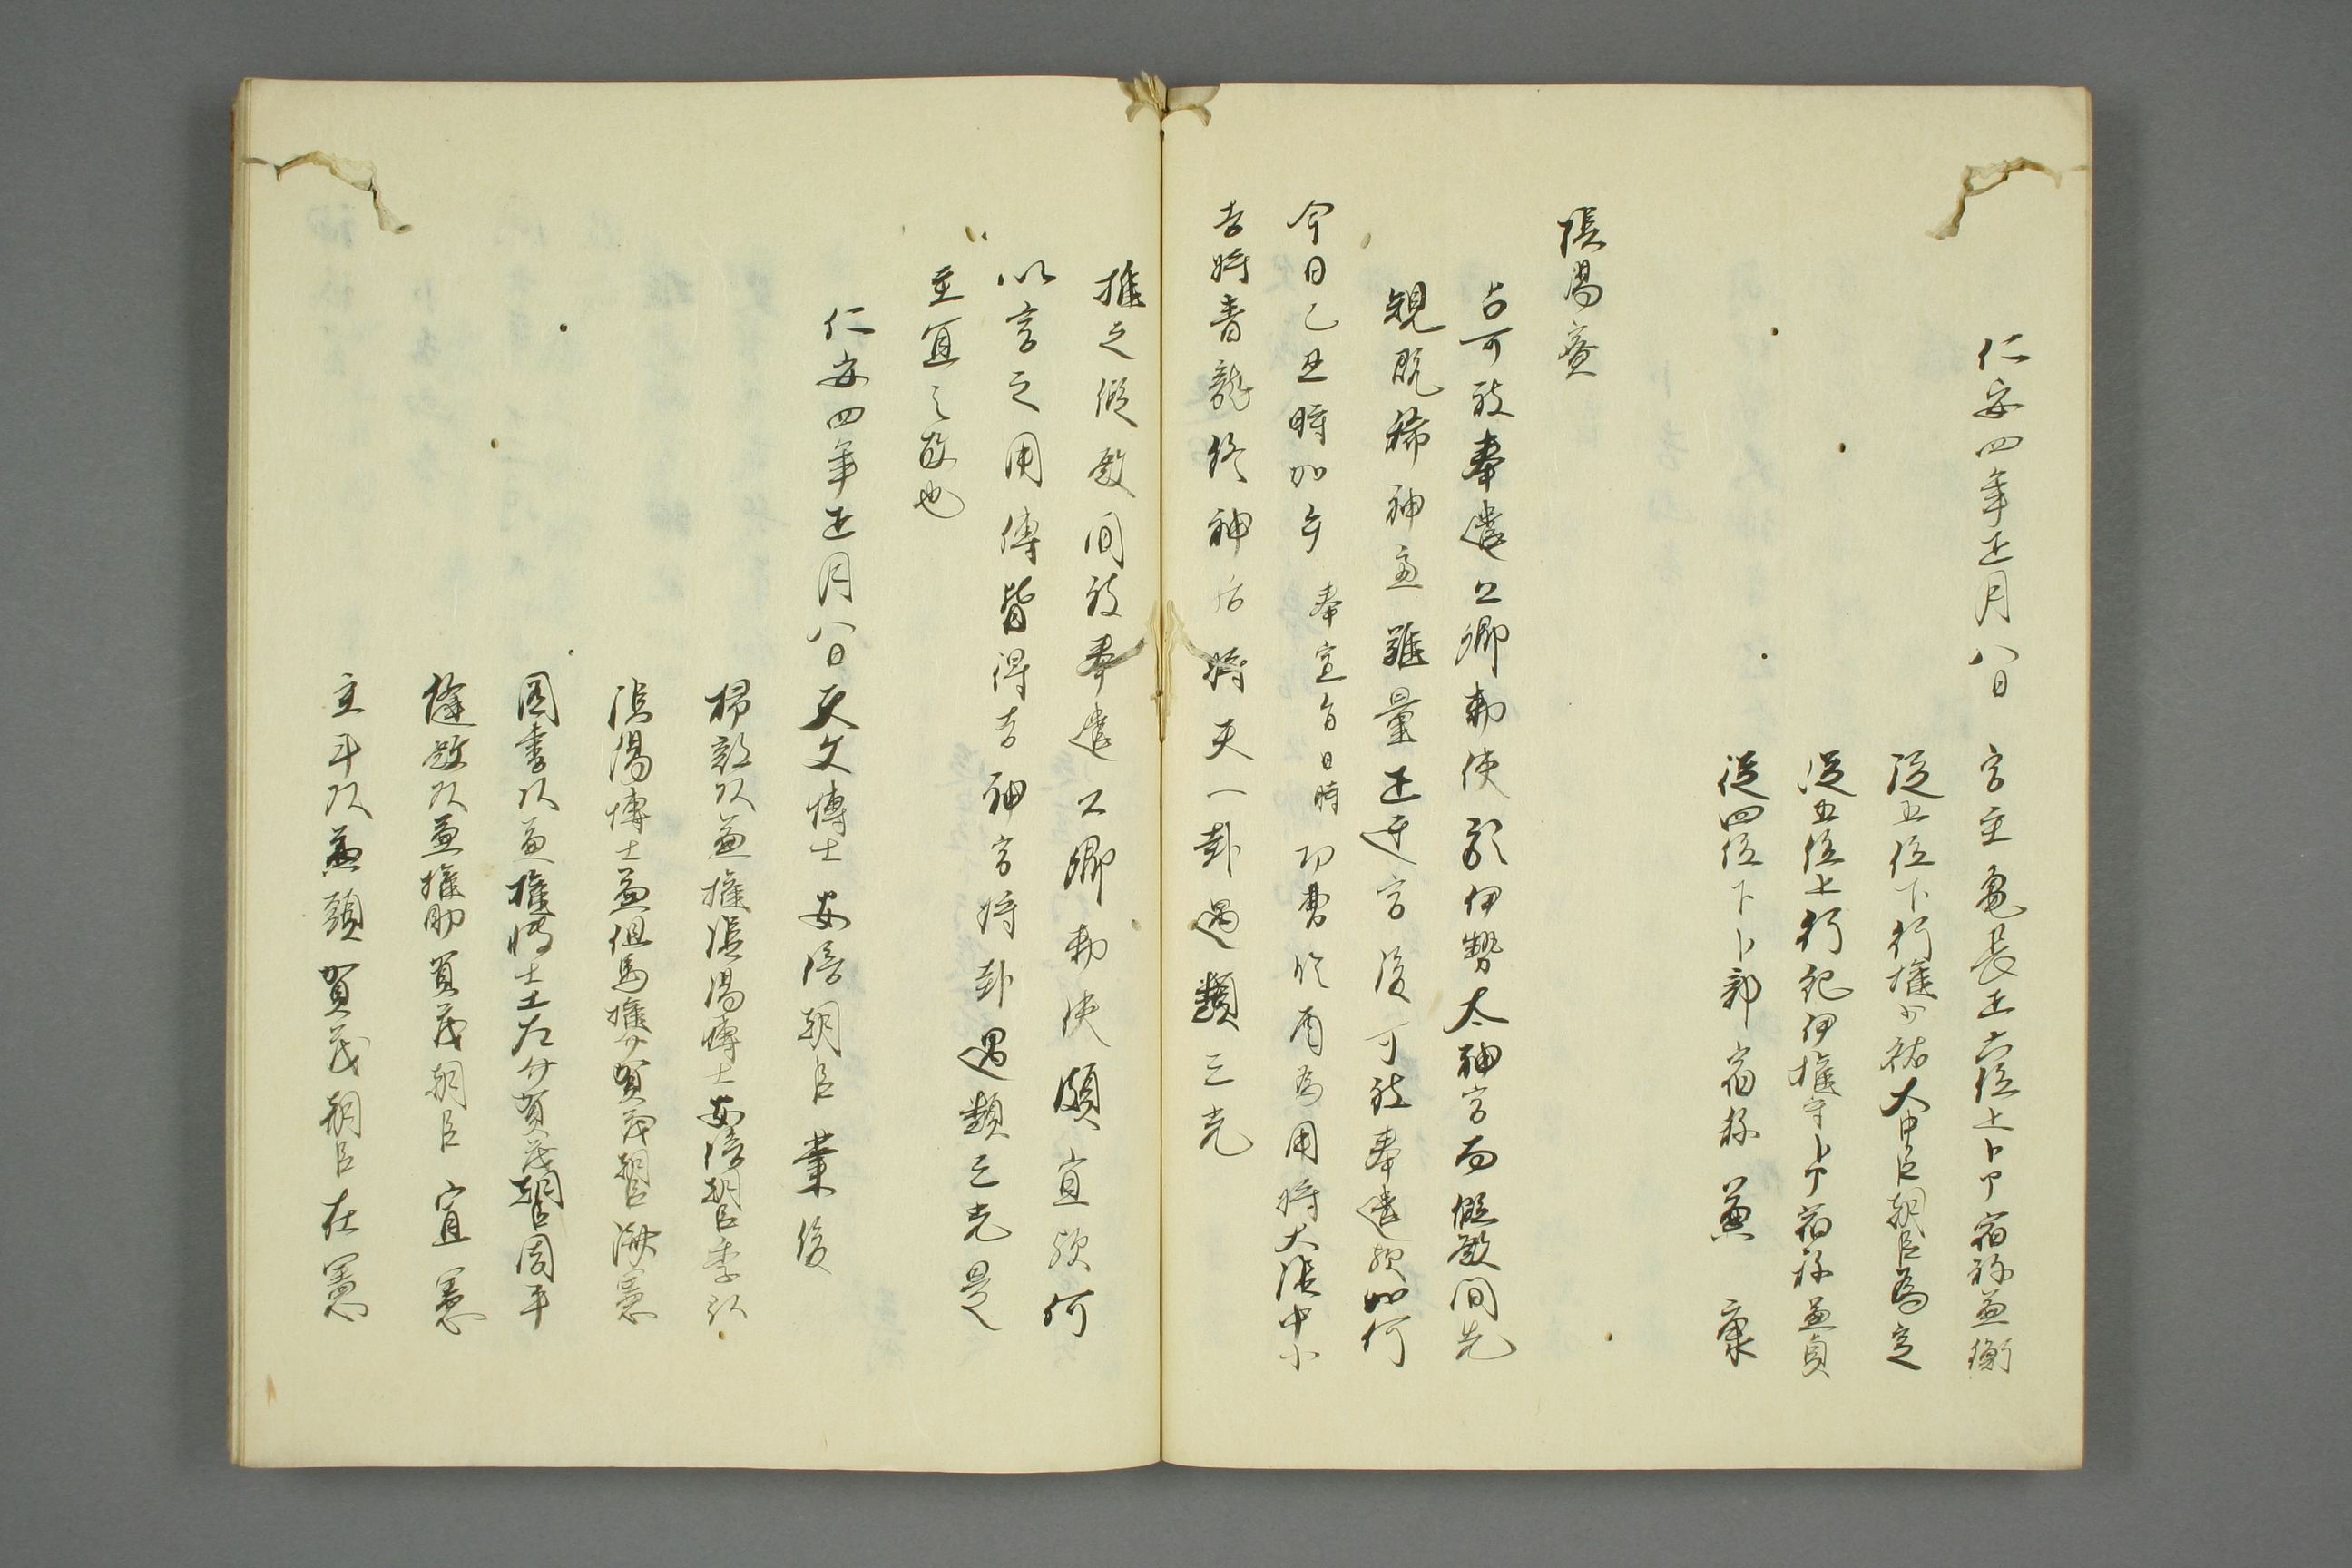 仁安四年正月八日　宮主亀長正六位上卜部宿祢兼衡
従五位下行権少祐大中臣朝臣為定
従五位上行紀伊権守卜部宿祢兼貞
従四位下卜部宿祢兼康
陰陽寮
占可被奉遣公卿勅使於伊勢太神宮而仮殿間先
規既稀神慮難量正遷宮後可被奉遣歟如何
今日乙丑時加午　奉宣旨日時　功曹臨酉為用将大陰中小
吉将青龍終神后将天一卦遇類三光
推之仮殿間被奉遣公卿勅使頗宜歟何
以言之用伝皆得吉神吉将卦遇類三光是
主宜之故也
仁安四年正月八日天文博士安倍朝臣業俊
掃部頭兼権陰陽博士安倍朝臣季弘
陰陽博士兼但馬権介賀茂朝臣済憲
図書頭兼権博士土左介賀茂朝臣周平
修理頭兼権助賀茂朝臣宣憲
主計頭兼頭賀茂朝臣在憲